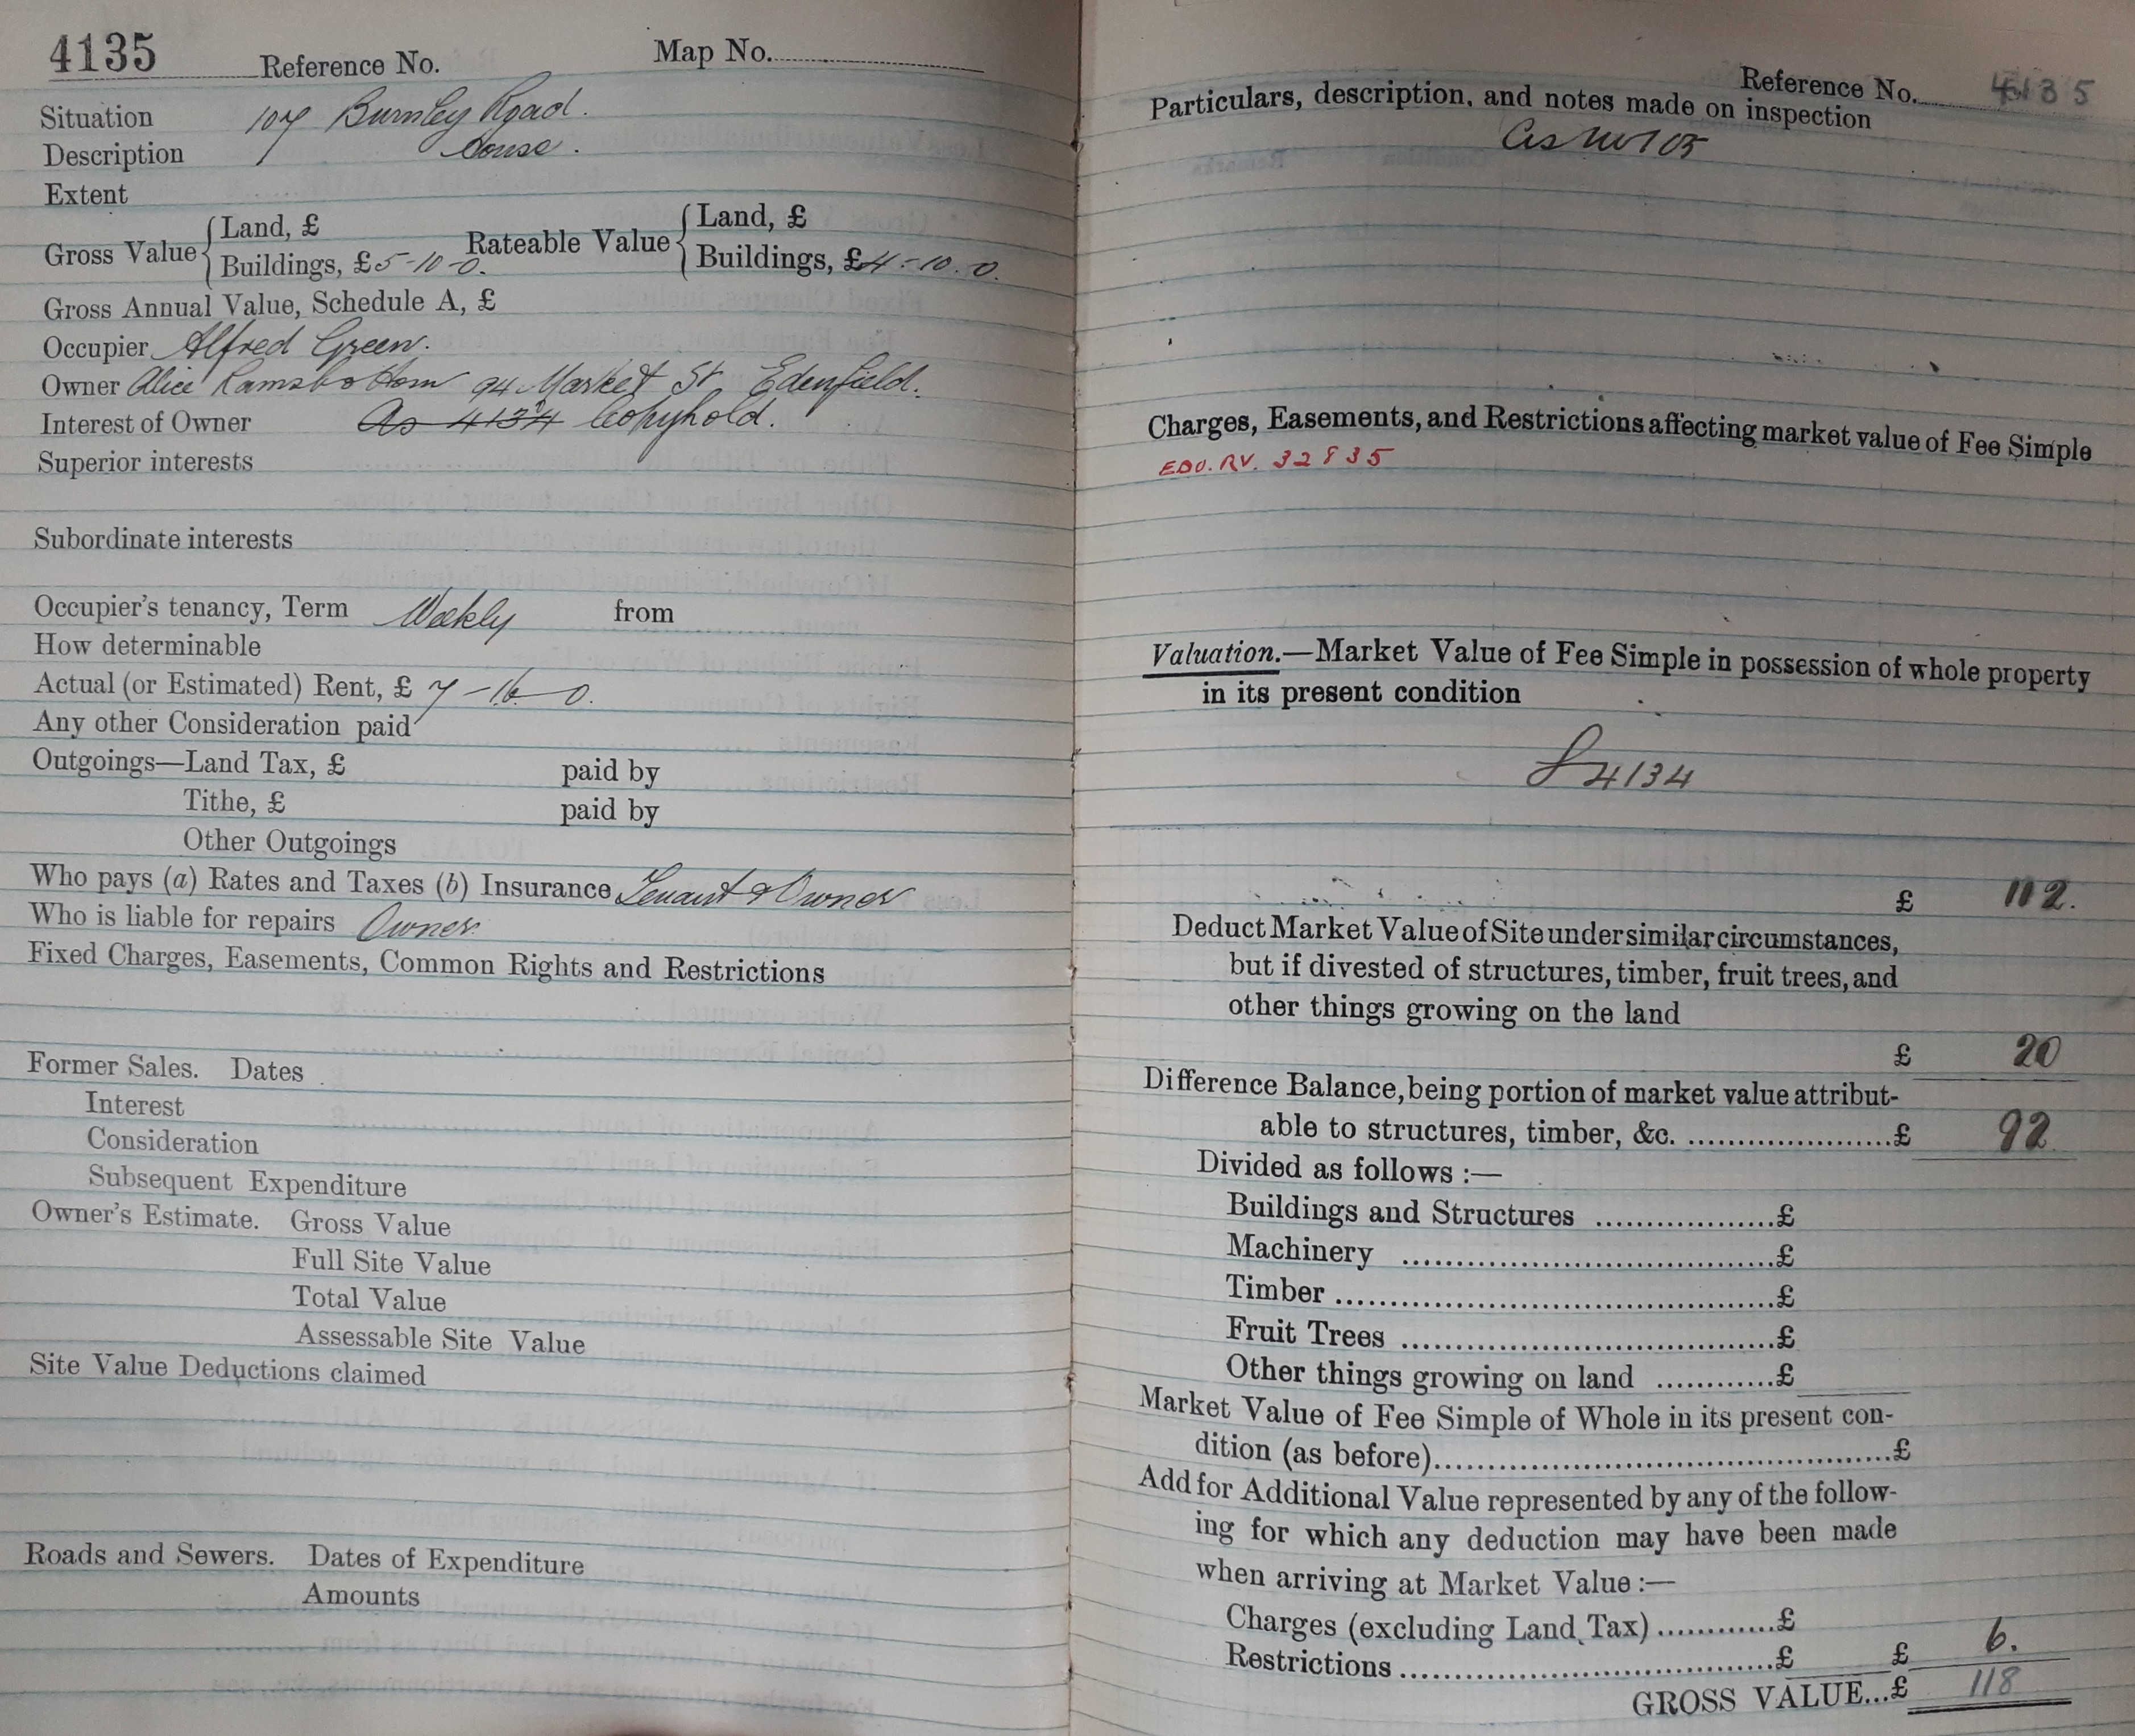 4135 Reference No. Map No.
Situation 107 Burnley Road.
Description House.
Extent
Gross Value { Land, £
Buildings, £5-10-0. Rateable Value { Land, £
Buildings, £4-10.0.
Gross Annual Value, Schedule A, £
Occupier Alfred Green.
Owner Alice Ramsbottom 94 Market St Edenfield.
Interest of Owner As 4134 Copyhold.
Superior interests
Subordinate interests
Occupier's tenancy, Term Weekly from
How determinable
Actual (or Estimated) Rent, £ 7-16-0.
Any other Consideration paid
Outgoings—Land Tax, £ paid by
Tithe, £ paid by
Other Outgoings
Who pays (a) Rates and Taxes (b) Insurance Tenant & Owner
Who is liable for repairs Owner
Fixed Charges, Easements, Common Rights and Restrictions
Former Sales. Dates
Interest
Consideration
Subsequent Expenditure
Owner's Estimate. Gross Value
Full Site Value
Total Value
Assessable Site Value
Site Value Deductions claimed
Roads and Sewers. Dates of Expenditure
Amounts
Reference No. 4135
Particulars, description, and notes made on inspection
As No 105
Charges, Easements, and Restrictions affecting market value of Fee Simple
EDO. RV. 32835
Valuation.—Market Value of Fee Simple in possession of whole property
in its present condition
4134
£ 112.
Deduct Market Value of Site under similar circumstances,
but if divested of structures, timber, fruit trees, and
other things growing on the land
£ 20
Difference Balance, being portion of market value attribut-
able to structures, timber, &c. ....................£ 92
Divided as follows :—
Buildings and Structures ..................£
Machinery ......................................£
Timber ............................................£
Fruit Trees ......................................£
Other things growing on land ............£
Market Value of Fee Simple of Whole in its present con-
dition (as before)..............................................£
Add for Additional Value represented by any of the follow-
ing for which any deduction may have been made
when arriving at Market Value :—
Charges (excluding Land Tax) ............£
Restrictions ......................................£ £ 6.
GROSS VALUE...£ 118